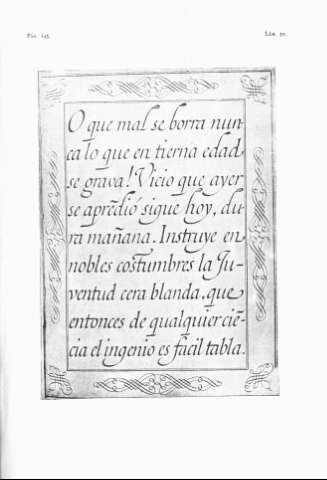 Pág. 145.
Lám. 50.
O que mal se borra nun-
ca lo que en tierna edad
se grava! Vicio que ayer
se aprẽdió sigue hoy, du-
ra mañana. Instruye en
nobles costumbres la Ju-
ventud cera blanda, que
entonces de qualquier ciẽ-
cia el ingenio es fácil tabla.